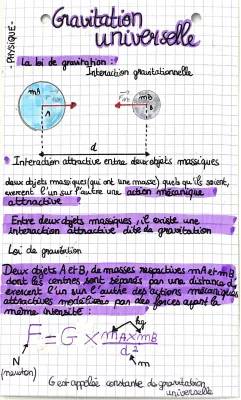 - PHYSIQUE -
Gravitation
universelle
La loi de gravitation :
Interaction gravitationnelle
mA
A
mB
B
d
Interaction attractive entre deux objets massiques
deux objets massiques (qui ont une masse) quels qu'ils soient,
exercent l'un sur l'autre une action mécanique
attractive
Entre deux objets massiques, il existe une
interaction attractive dite de gravitation
Loi de gravitation
Deux objets A et B, de masses respectives mA et mB,
dont les centres sont séparés par une distance d
exercent l'un sur l'autre des actions mécaniques
attractives modélisées par des forces ayant la
même intensité :
kg
F = G x mA x mB
d²
N
(newton)
m
G est appelée constante de gravitation
universelle